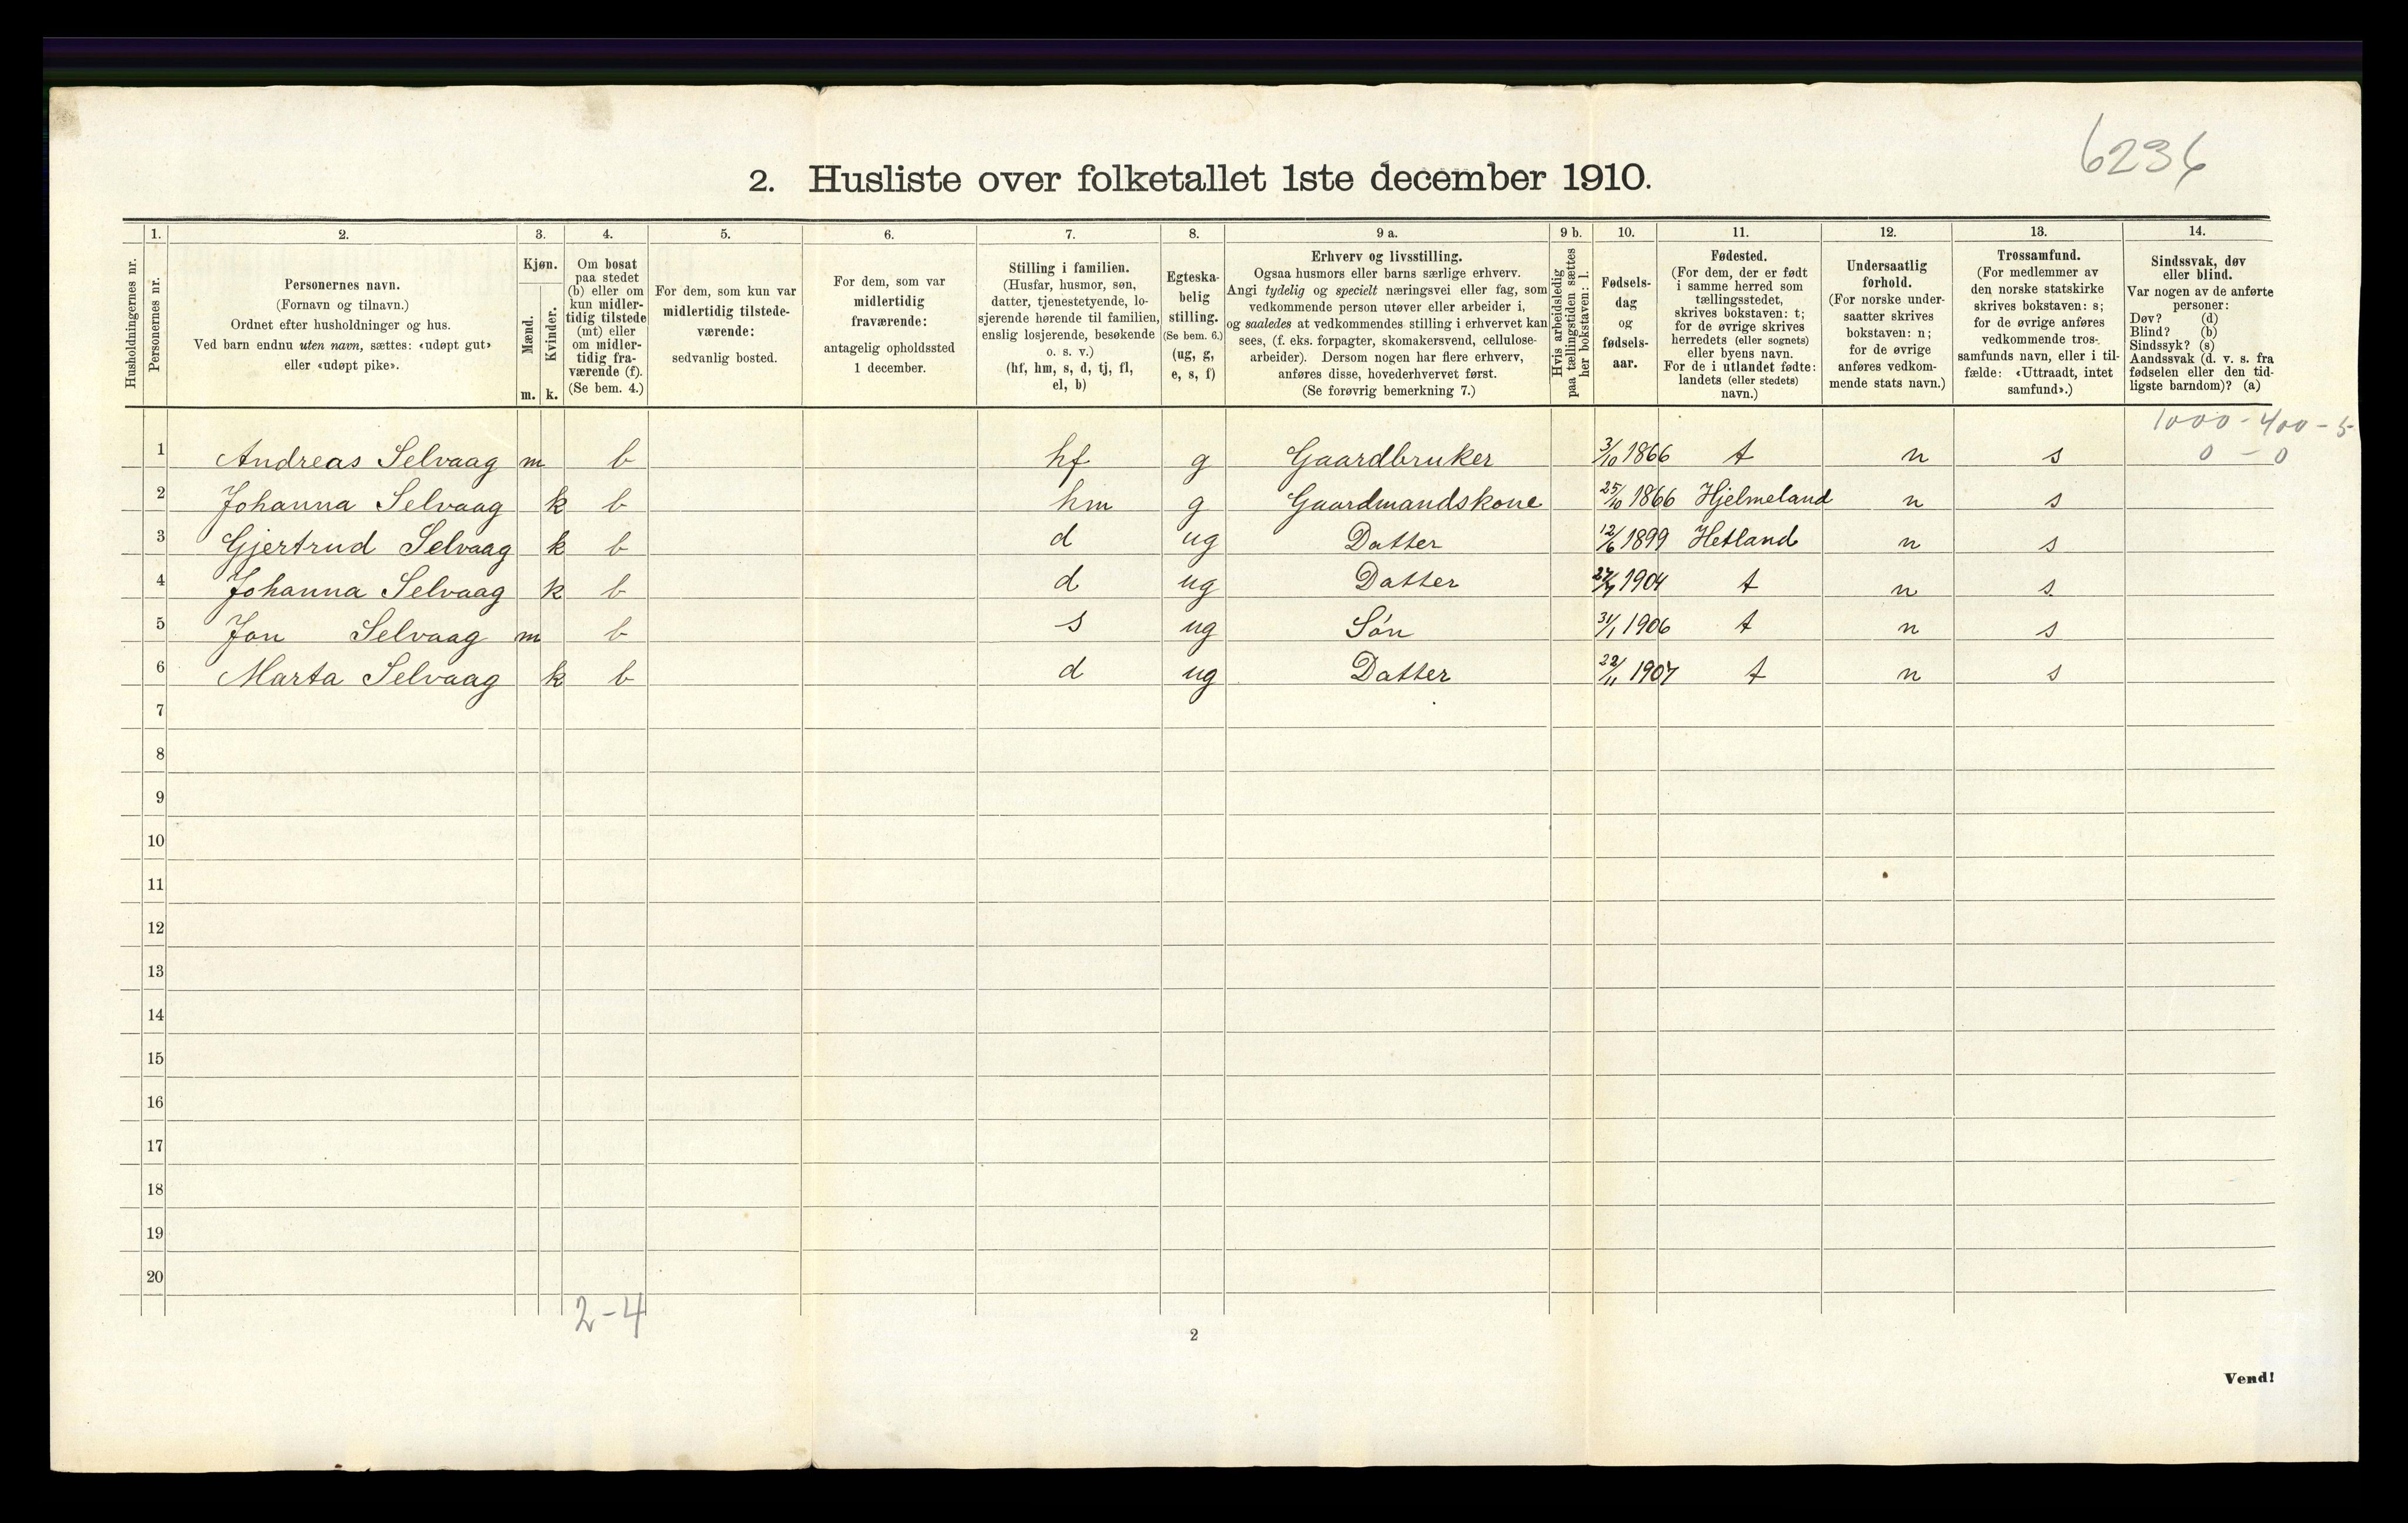 6236
2. Husliste over folketallet 1ste december 1910.
Husholdningernes nr.
1.
Personernes nr.
2.
Personernes navn.
(Fornavn og tilnavn.)
Ordnet efter husholdninger og hus.
Ved barn endnu uten navn, sættes: «udøpt gut»
eller «udøpt pike».
3.
Kjøn.
Mænd.
Kvinder.
m. k.
4.
Om bosat
paa stedet
(b) eller om
kun midler-
tidig tilstede
(mt) eller
om midler-
tidig fra-
værende (f).
(Se bem. 4.)
5.
For dem, som kun var
midlertidig tilstede-
værende:
sedvanlig bosted.
6.
For dem, som var
midlertidig
fraværende:
antagelig opholdssted
1 december.
7.
Stilling i familien.
(Husfar, husmor, søn,
datter, tjenestetyende, lo-
sjerende hørende til familien,
enslig losjerende, besøkende
o. s. v.)
(hf, hm, s, d, tj, fl,
el, b)
8.
Egteska-
belig
stilling.
(Se bem. 6.)
(ug, g,
e, s, f)
9 a.
Erhverv og livsstilling.
Ogsaa husmors eller barns særlige erhverv.
Angi tydelig og specielt næringsvei eller fag, som
vedkommende person utøver eller arbeider i,
og saaledes at vedkommendes stilling i erhvervet kan
sees, (f. eks. forpagter, skomakersvend, cellulose-
arbeider). Dersom nogen har flere erhverv,
anføres disse, hovederhvervet først.
(Se forøvrig bemerkning 7.)
9 b.
Hvis arbeidsledig
paa tællingstiden sættes
her bokstaven: l.
10.
Fødsels-
dag
og
fødsels-
aar.
11.
Fødested.
(For dem, der er født
i samme herred som
tællingsstedet,
skrives bokstaven: t;
for de øvrige skrives
herredets (eller sognets)
eller byens navn.
For de i utlandet fødte:
landets (eller stedets)
navn.)
12.
Undersaatlig
forhold.
(For norske under-
saatter skrives
bokstaven: n;
for de øvrige
anføres vedkom-
mende stats navn.)
13.
Trossamfund.
(For medlemmer av
den norske statskirke
skrives bokstaven: s;
for de øvrige anføres
vedkommende tros-
samfunds navn, eller i til-
fælde: «Uttraadt, intet
samfund».)
14.
Sindssvak, døv
eller blind.
Var nogen av de anførte
personer:
Døv? (d)
Blind? (b)
Sindssyk? (s)
Aandssvak (d. v. s. fra
fødselen eller den tid-
ligste barndom)? (a)
1000-400-5
0-0
1 Andreas Selvaag m b hf g Gaardbruker 3/10 1866 t n s
2 Johanna Selvaag k b hm g Gaardmandskone 25/10 1866 Hjelmeland n s
3 Gjertrud Selvaag k b d ug Datter 12/6 1899 Hetland n s
4 Johanna Selvaag k b d ug Datter 1904 t n s
5 Jon Selvaag m b s ug Søn 31/1 1906 t n s
6 Marta Selvaag k b d ug Datter 22/11 1907 t n s
7
8
9
10
11
12
13
14
15
16
17
18
19
20
2-4
2
Vend!